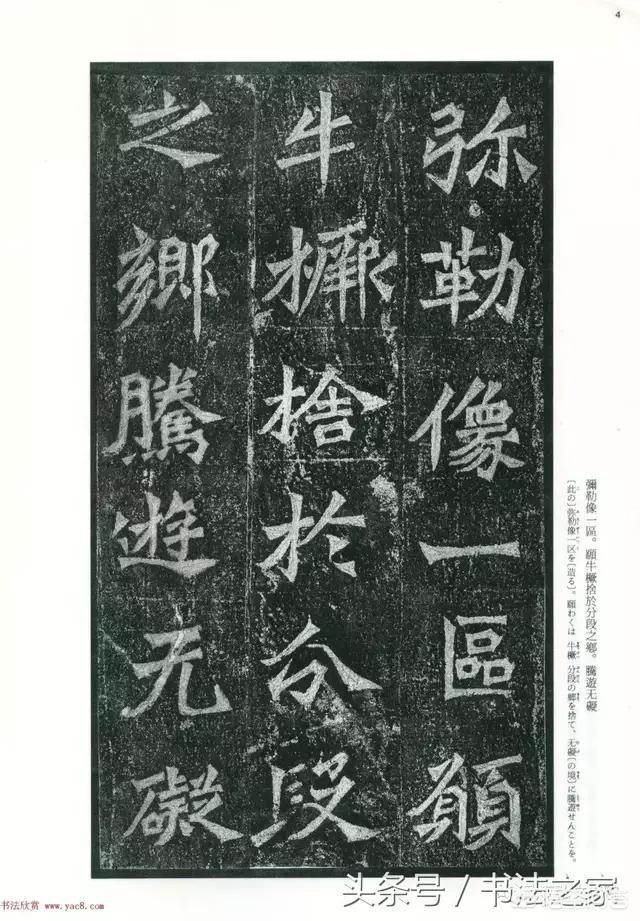 4
弥勒像一區願
牛橛捨於分段
之鄉騰遊无礙
彌勒像一區。願牛橛捨於分段之鄉。騰遊无礙
［此の］弥勒像一区を［造る］。願わくは 牛橛 分段の郷を捨て、无礙［の境］に騰遊せんことを。
头条号／书法之家
书法欣赏 www.yac8.com